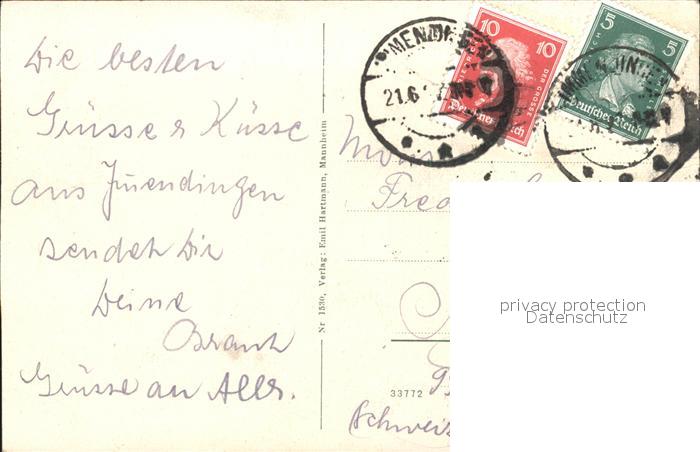 Die besten
Grüsse & Küsse
aus
sendet Dir
Deine
Braut
Grüsse an Alle.
Nr 1530, Verlag: Emil Hartmann, Mannheim
21.6
10 10
DER GROSSE
Deutsches Reich
5 5
Deutsches Reich
33772
Schweiz
privacy protection
Datenschutz